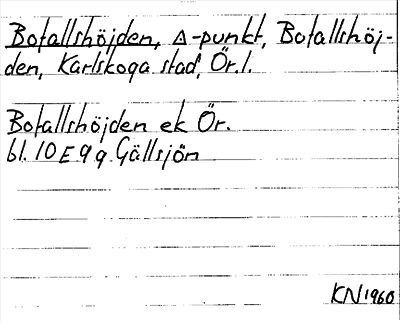 Botallshöjden, △-punkt, Botallshöj-
den, Karlskoga stad, Ör.l.
Botallshöjden ek Ör.
bl. 10 E 9 g. Gällsjön
KN 1960